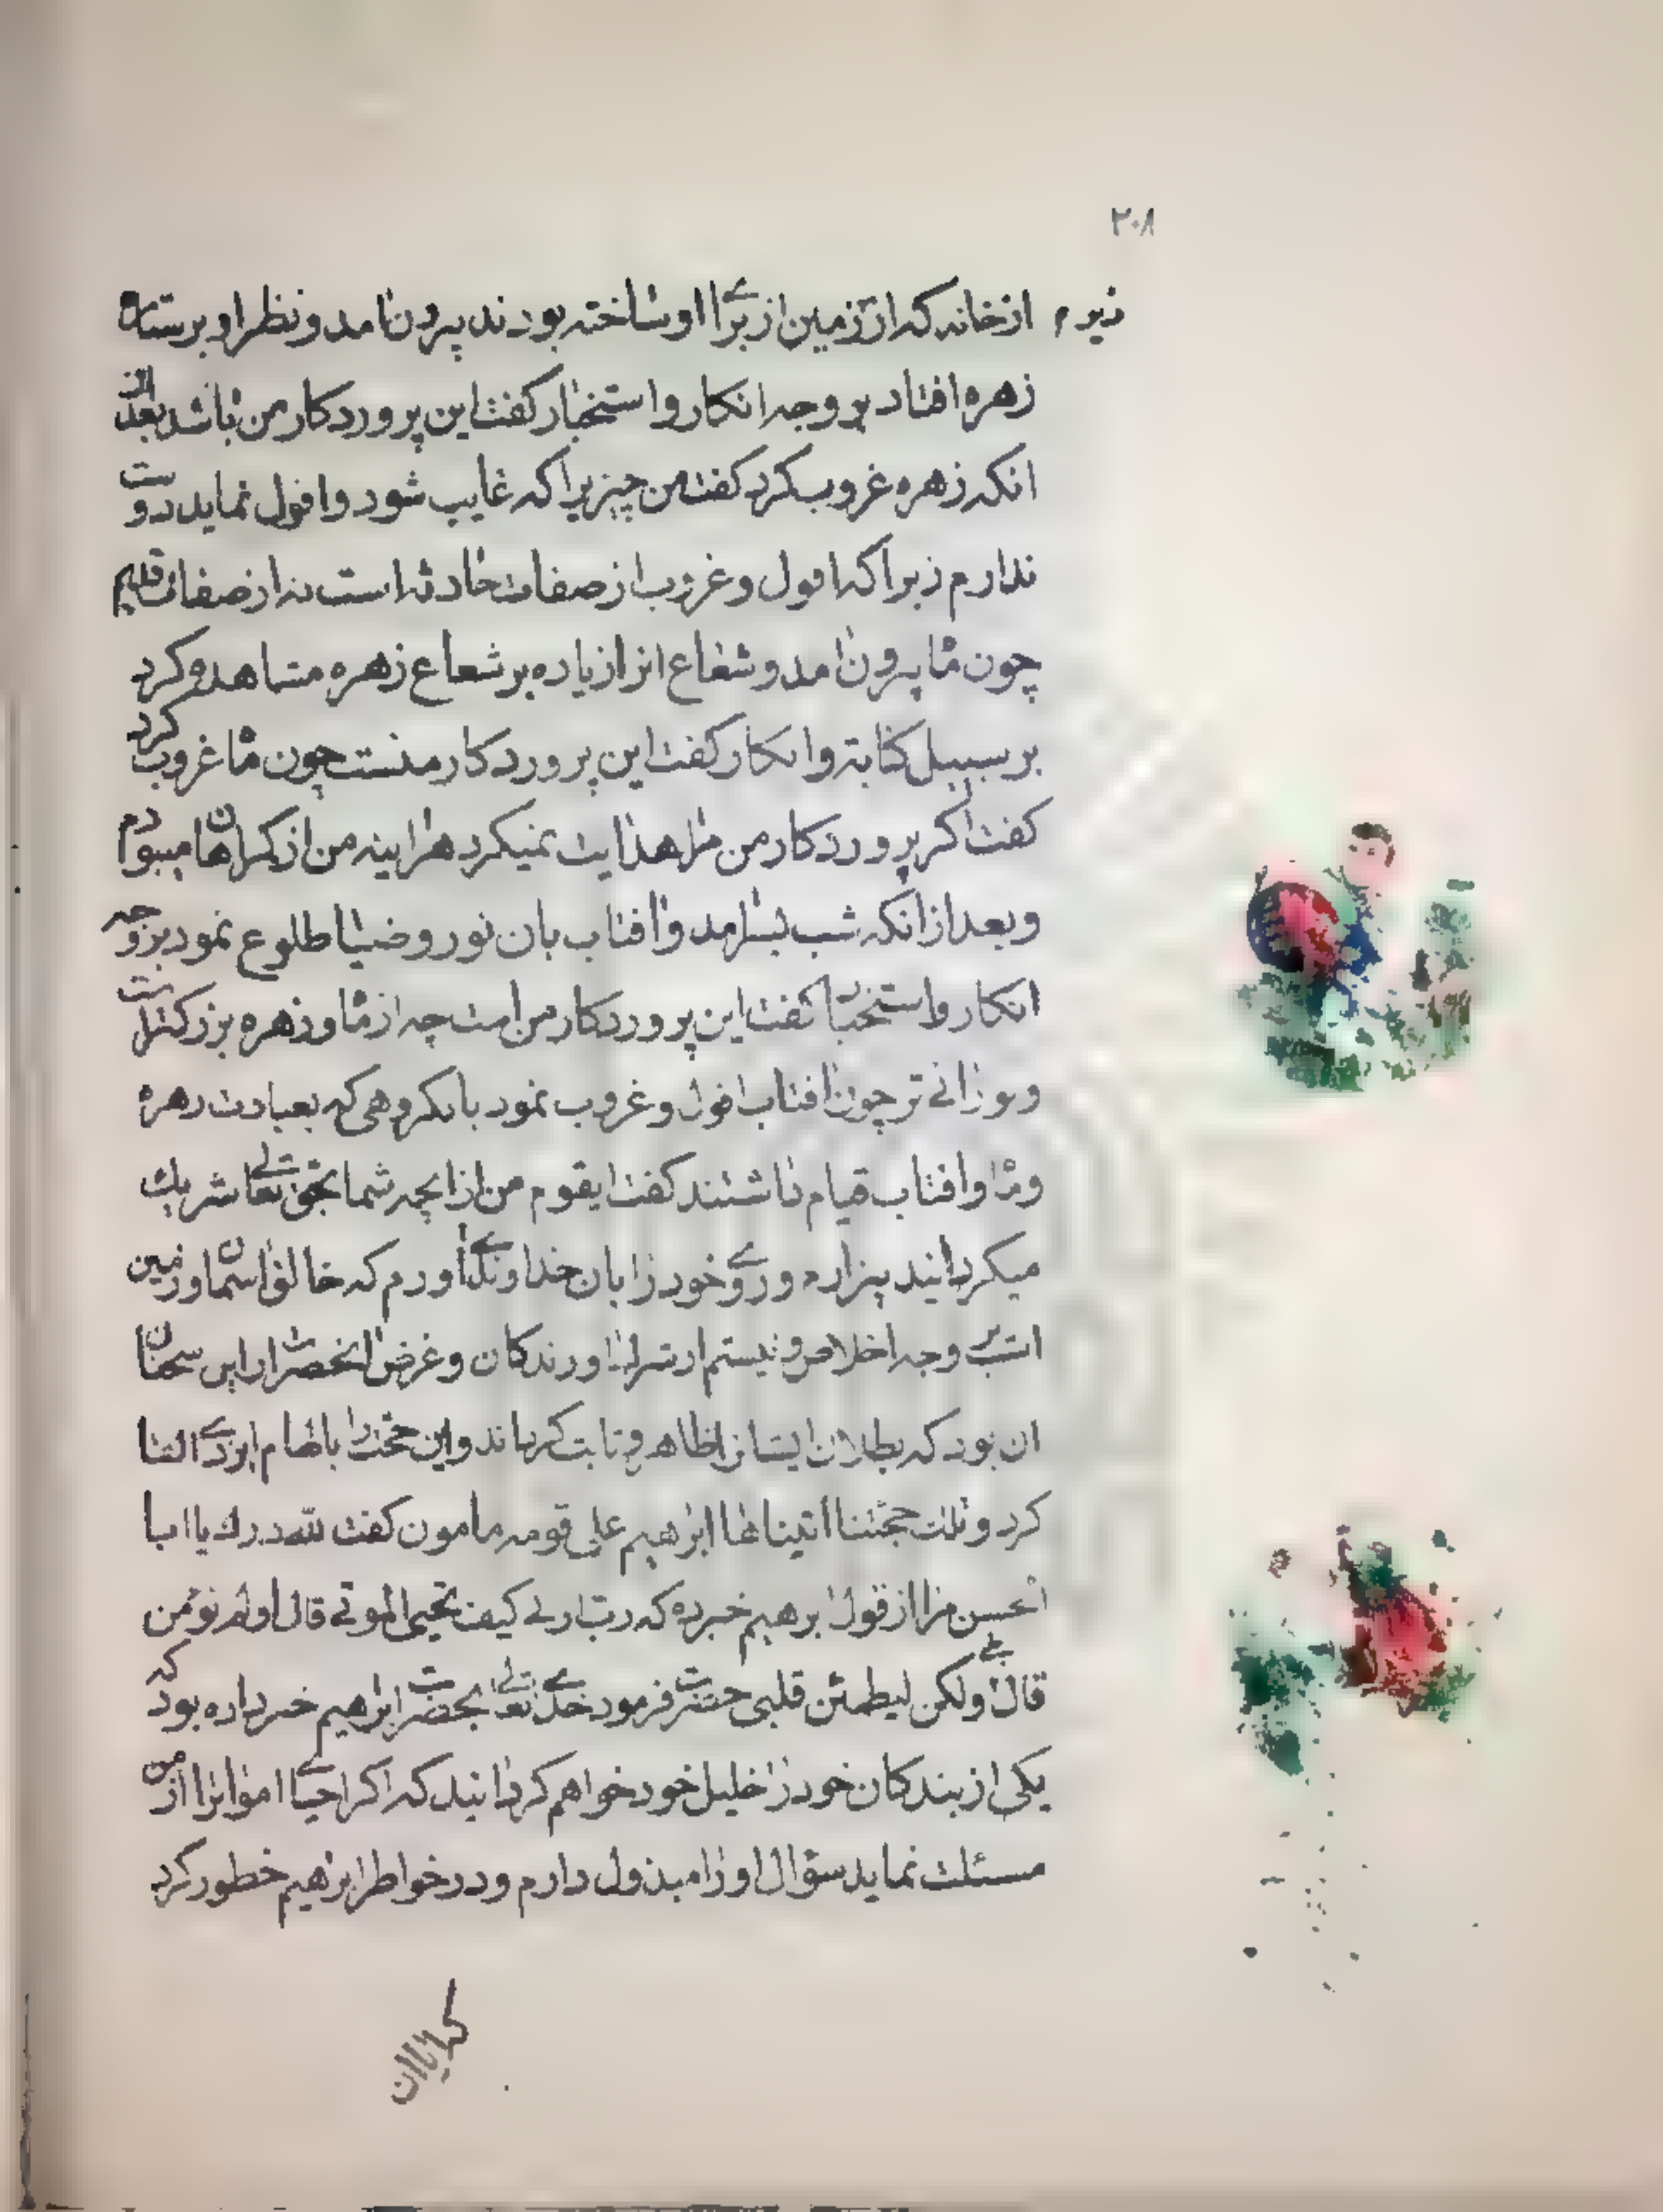 ۲۰۸
از خانه که از زمین از برای او ساخته بودند بیرون آمد و نظر او بر ستاره
زهره افتاد بر وجه انکار و استخبار کفت این پروردکار من باشد بعد از
انکه زهره غروب کرد کفت من چیزیرا که غایب شود و افول نماید دوست
ندارم زیرا که افول و غروب از صفات حادثه است نه از صفات قدیم
چون ماه بیرون آمد و شعاع انرا زیاده بر شعاع زهره مشاهده کرد
بر سبیل کنایه و انکار کفت این پروردکار منست چون ماه غروب کرد
کفت اکر پروردکار من مرا هدایت نمیکرد هراینه من از کمراهان میبودم
و بعد از انکه شب بسر امد و افتاب بان نور و ضیا طلوع نمود بر وجه
انکار و استخبار کفت این پروردکار من است چه از ماه و زهره بزرکتر است
و نورانی تر چون افتاب افول و غروب نمود بانکروهی که بعبادت زهره
و ماه و افتاب قیام داشتند کفت ایقوم من از انچه شما بحق تعالی شریك
میکردانید بیزارم و روی خود را بان خداوندی اورم که خالق اسمان و زمین
است بر وجه اخلاص و نیستم از شرك اورندکان و غرض انحضرت از این سخنان
ان بود که بطلان ایشانرا ظاهر و ثابت کرداند و این حجت را بالهام ایزدی القا
کرد و تلك حجتنا اتیناها ابرهیم علی قومه مامون کفت لله درك یا ابا
الحسن مرا از قول ابرهیم خبر ده که رب ارنی کیف تحیی الموتی قال اولم تؤمن
قال بلی ولکن لیطمئن قلبی حضرت فرمود خدای تعالی بحضرت ابراهیم خبر داده بود که
یکی از بندکان خود را خلیل خود خواهم کردانید که اکر احیای اموات را از من
مسئلت نماید سؤال او را مبذول دارم و در خواطر ابرهیم خطور کرد